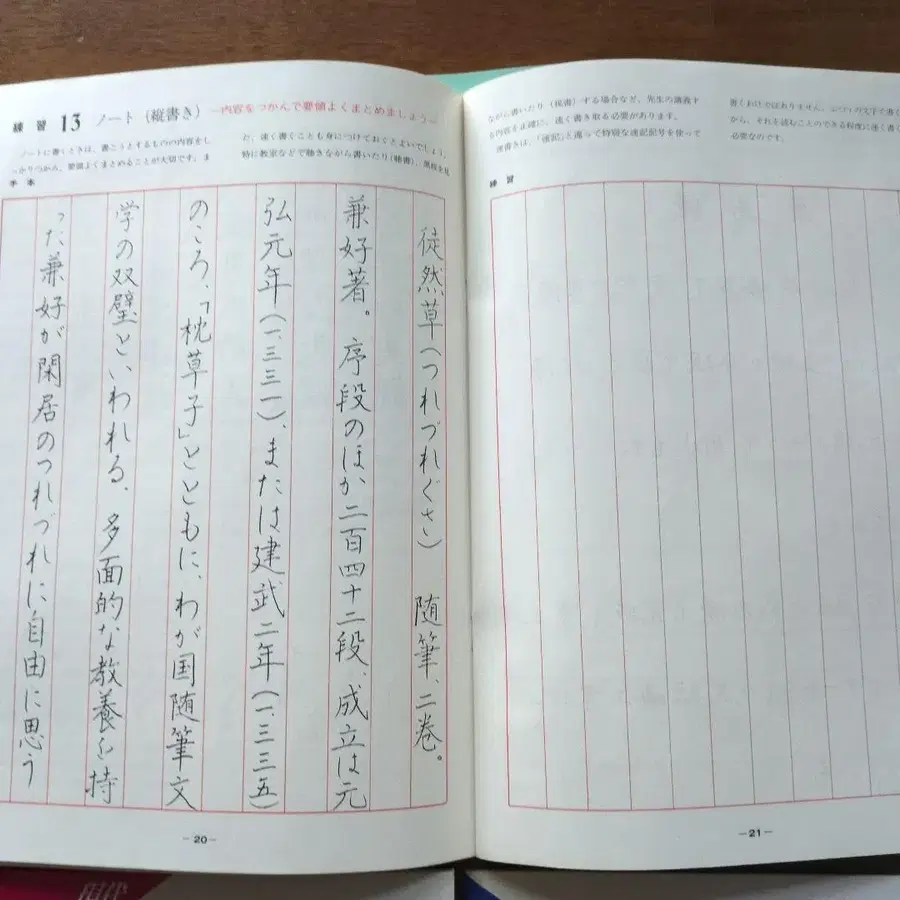 練習 13 ノート（縦書き） —内容をつかんで要領よくまとめましょう—
ノートに書くときは、書こうとするものの内容をし
っかりつかみ、要領よくまとめることが大切です。ま
た、速く書くことも身につけておくとよいでしょう。
特に教室などで聴きながら書いたり（聴書）、黒板を見
手本
徒然草（つれづれぐさ）　随筆、二巻。
兼好著。序段のほか二百四十二段、成立は元
弘元年（一三三一）、または建武二年（一三三五）
のころ、「枕草子」とともに、わが国随筆文
学の双璧といわれる。多面的な教養を持
った兼好が閑居のつれづれに自由に思う
－20－
ながら書いたり（視書）する場合など、先生の講義す
る内容を正確に、速く書き取る必要があります。
速書きは、「速記」と違って特殊な速記記号を使って
書くわけではありません。ふつうの文字で書く
から、それを読むことのできる程度に速く書く
必要なのです。
練習
－21－
現代